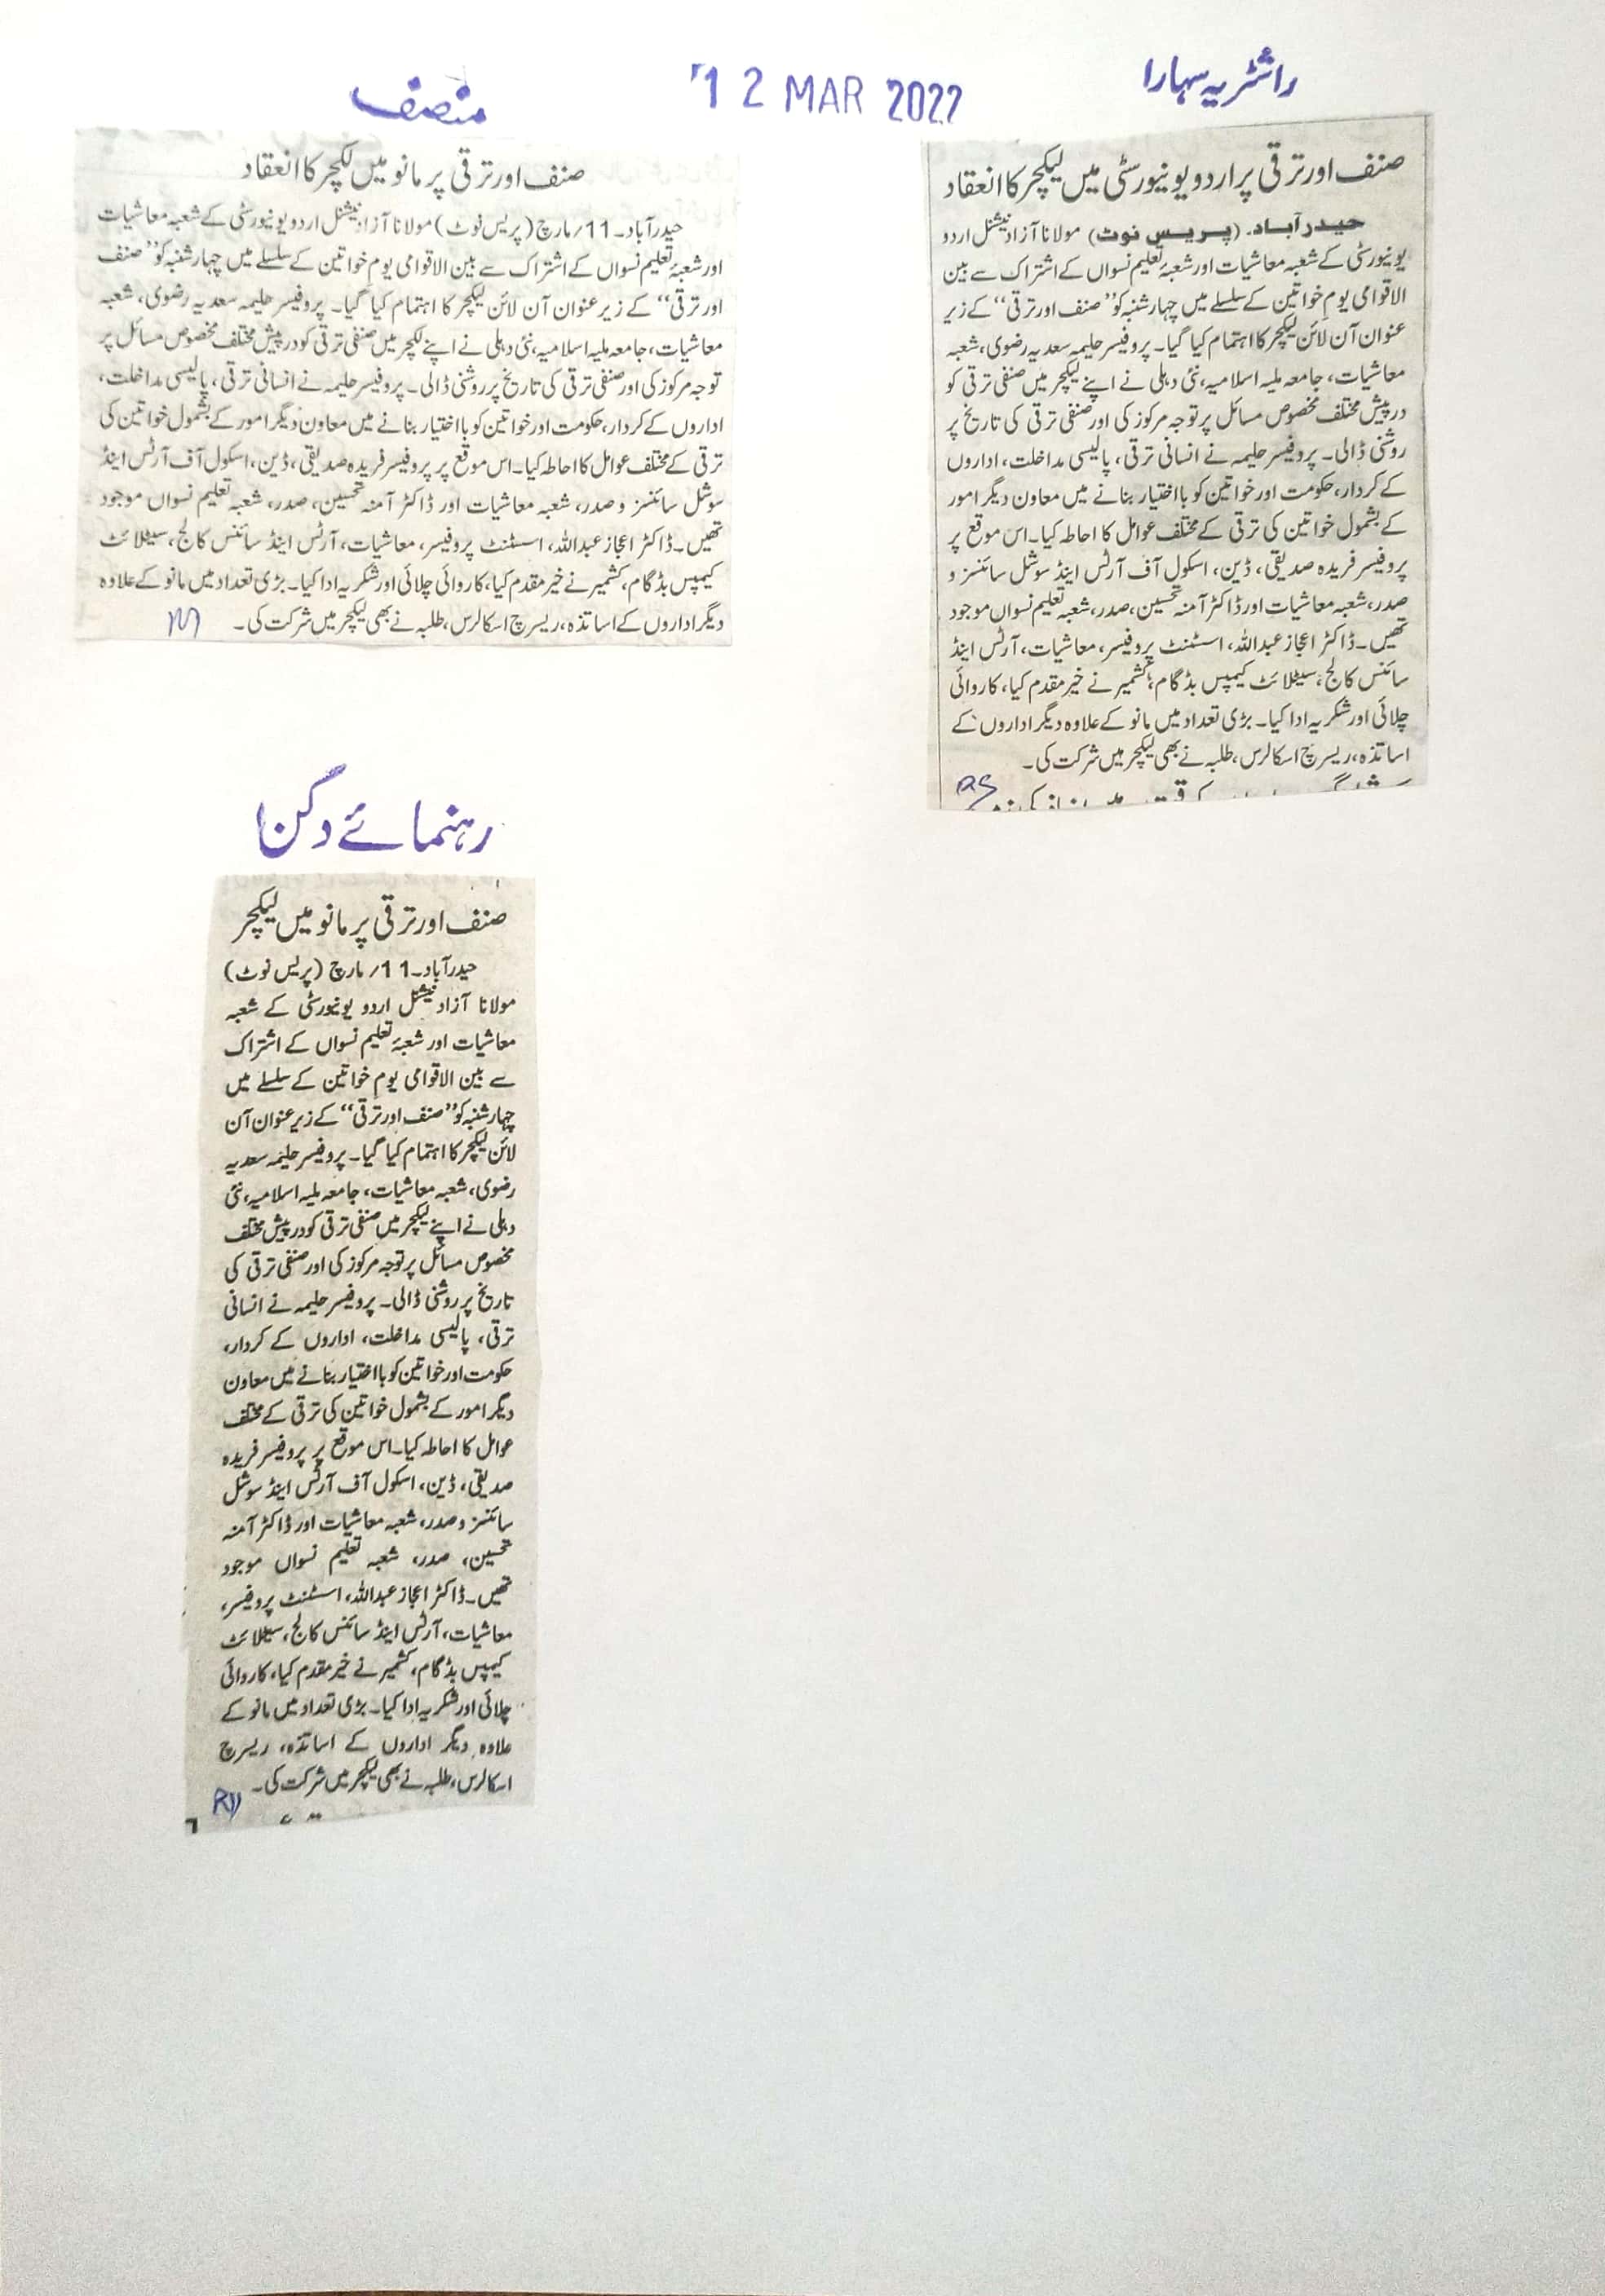 منصف
12 MAR 2022
راشٹریہ سہارا
صنف اور ترقی پر مانو میں لکچر کا انعقاد
حیدرآباد۔11/مارچ (پریس نوٹ) مولانا آزاد نیشنل اردو یونیورسٹی کے شعبہ معاشیات
اور شعبۂ تعلیم نسواں کے اشتراک سے بین الاقوامی یومِ خواتین کے سلسلے میں چہارشنبہ کو ’’صنف
اور ترقی‘‘ کے زیر عنوان آن لائن لیکچر کا اہتمام کیا گیا۔ پروفیسر حلیمہ سعدیہ رضوی، شعبہ
معاشیات، جامعہ ملیہ اسلامیہ، نئی دہلی نے اپنے لکچر میں صنفی ترقی کو درپیش مختلف مخصوص مسائل پر
توجہ مرکوز کی اور صنفی ترقی کی تاریخ پر روشنی ڈالی۔ پروفیسر حلیمہ نے انسانی ترقی، پالیسی مداخلت،
اداروں کے کردار، حکومت اور خواتین کو بااختیار بنانے میں معاون دیگر امور کے بشمول خواتین کی
ترقی کے مختلف عوامل کا احاطہ کیا۔ اس موقع پر پروفیسر فریدہ صدیقی، ڈین، اسکول آف آرٹس اینڈ
سوشل سائنسز و صدر، شعبہ معاشیات اور ڈاکٹر آمنہ تحسین، صدر، شعبہ تعلیم نسواں موجود
تھیں۔ ڈاکٹر اعجاز عبداللہ، اسسٹنٹ پروفیسر، معاشیات، آرٹس اینڈ سائنس کالج، سیٹلائٹ
کیمپس بڈگام، کشمیر نے خیر مقدم کیا، کاروائی چلائی اور شکریہ ادا کیا۔ بڑی تعداد میں مانو کے علاوہ
دیگر اداروں کے اساتذہ، ریسرچ اسکالرس، طلبہ نے بھی لیکچر میں شرکت کی۔
M
صنف اور ترقی پر اردو یونیورسٹی میں لیکچر کا انعقاد
حیدرآباد۔ (پریس نوٹ) مولانا آزاد نیشنل اردو
یونیورسٹی کے شعبہ معاشیات اور شعبۂ تعلیم نسواں کے اشتراک سے بین
الاقوامی یومِ خواتین کے سلسلے میں چہارشنبہ کو ’’صنف اور ترقی‘‘ کے زیر
عنوان آن لائن لیکچر کا اہتمام کیا گیا۔ پروفیسر حلیمہ سعدیہ رضوی، شعبہ
معاشیات، جامعہ ملیہ اسلامیہ، نئی دہلی نے اپنے لیکچر میں صنفی ترقی کو
درپیش مختلف مخصوص مسائل پر توجہ مرکوز کی اور صنفی ترقی کی تاریخ پر
روشنی ڈالی۔ پروفیسر حلیمہ نے انسانی ترقی، پالیسی مداخلت، اداروں
کے کردار، حکومت اور خواتین کو بااختیار بنانے میں معاون دیگر امور
کے بشمول خواتین کی ترقی کے مختلف عوامل کا احاطہ کیا۔ اس موقع پر
پروفیسر فریدہ صدیقی، ڈین، اسکول آف آرٹس اینڈ سوشل سائنسز و
صدر، شعبہ معاشیات اور ڈاکٹر آمنہ تحسین، صدر، شعبہ تعلیم نسواں موجود
تھیں۔ ڈاکٹر اعجاز عبداللہ، اسسٹنٹ پروفیسر، معاشیات، آرٹس اینڈ
سائنس کالج، سیٹلائٹ کیمپس بڈگام، کشمیر نے خیر مقدم کیا، کاروائی
چلائی اور شکریہ ادا کیا۔ بڑی تعداد میں مانو کے علاوہ دیگر اداروں کے
اساتذہ، ریسرچ اسکالرس، طلبہ نے بھی لیکچر میں شرکت کی۔
RS
رہنمائے دکن
صنف اور ترقی پر مانو میں لیکچر
حیدرآباد۔11/مارچ (پریس نوٹ)
مولانا آزاد نیشنل اردو یونیورسٹی کے شعبہ
معاشیات اور شعبۂ تعلیم نسواں کے اشتراک
سے بین الاقوامی یومِ خواتین کے سلسلے میں
چہارشنبہ کو ’’صنف اور ترقی‘‘ کے زیر عنوان آن
لائن لیکچر کا اہتمام کیا گیا۔ پروفیسر حلیمہ سعدیہ
رضوی، شعبہ معاشیات، جامعہ ملیہ اسلامیہ، نئی
دہلی نے اپنے لیکچر میں صنفی ترقی کو درپیش مختلف
مخصوص مسائل پر توجہ مرکوز کی اور صنفی ترقی کی
تاریخ پر روشنی ڈالی۔ پروفیسر حلیمہ نے انسانی
ترقی، پالیسی مداخلت، اداروں کے کردار،
حکومت اور خواتین کو بااختیار بنانے میں معاون
دیگر امور کے بشمول خواتین کی ترقی کے مختلف
عوامل کا احاطہ کیا۔ اس موقع پر پروفیسر فریدہ
صدیقی، ڈین، اسکول آف آرٹس اینڈ سوشل
سائنسز و صدر، شعبہ معاشیات اور ڈاکٹر آمنہ
تحسین، صدر، شعبہ تعلیم نسواں موجود
تھیں۔ ڈاکٹر اعجاز عبداللہ، اسسٹنٹ پروفیسر،
معاشیات، آرٹس اینڈ سائنس کالج، سیٹلائٹ
کیمپس بڈگام، کشمیر نے خیر مقدم کیا، کاروائی
چلائی اور شکریہ ادا کیا۔ بڑی تعداد میں مانو کے
علاوہ دیگر اداروں کے اساتذہ، ریسرچ
اسکالرس، طلبہ نے بھی لیکچر میں شرکت کی۔